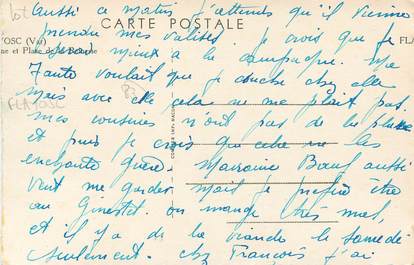 lot
Aussi ce matin j'attends qu'il vienne
CARTE POSTALE
prendre mes valises je crois que je
OSC (Var)
FLA
ne et Place de la
serai mieux à la campagne. Me
Tante voulait que je couche chez elle
mais avec elle cela ne me plait pas.
FLAYOSC
83
mes cousines n'ont pas de la place
et puis je crois que cela ne les
enchante guère Marraine Bœuf aussi
veut me garder. Mais je préfère être
au Ginestet. on mange très mal,
et il y a de la viande le samedi
seulement. chez François j'ai